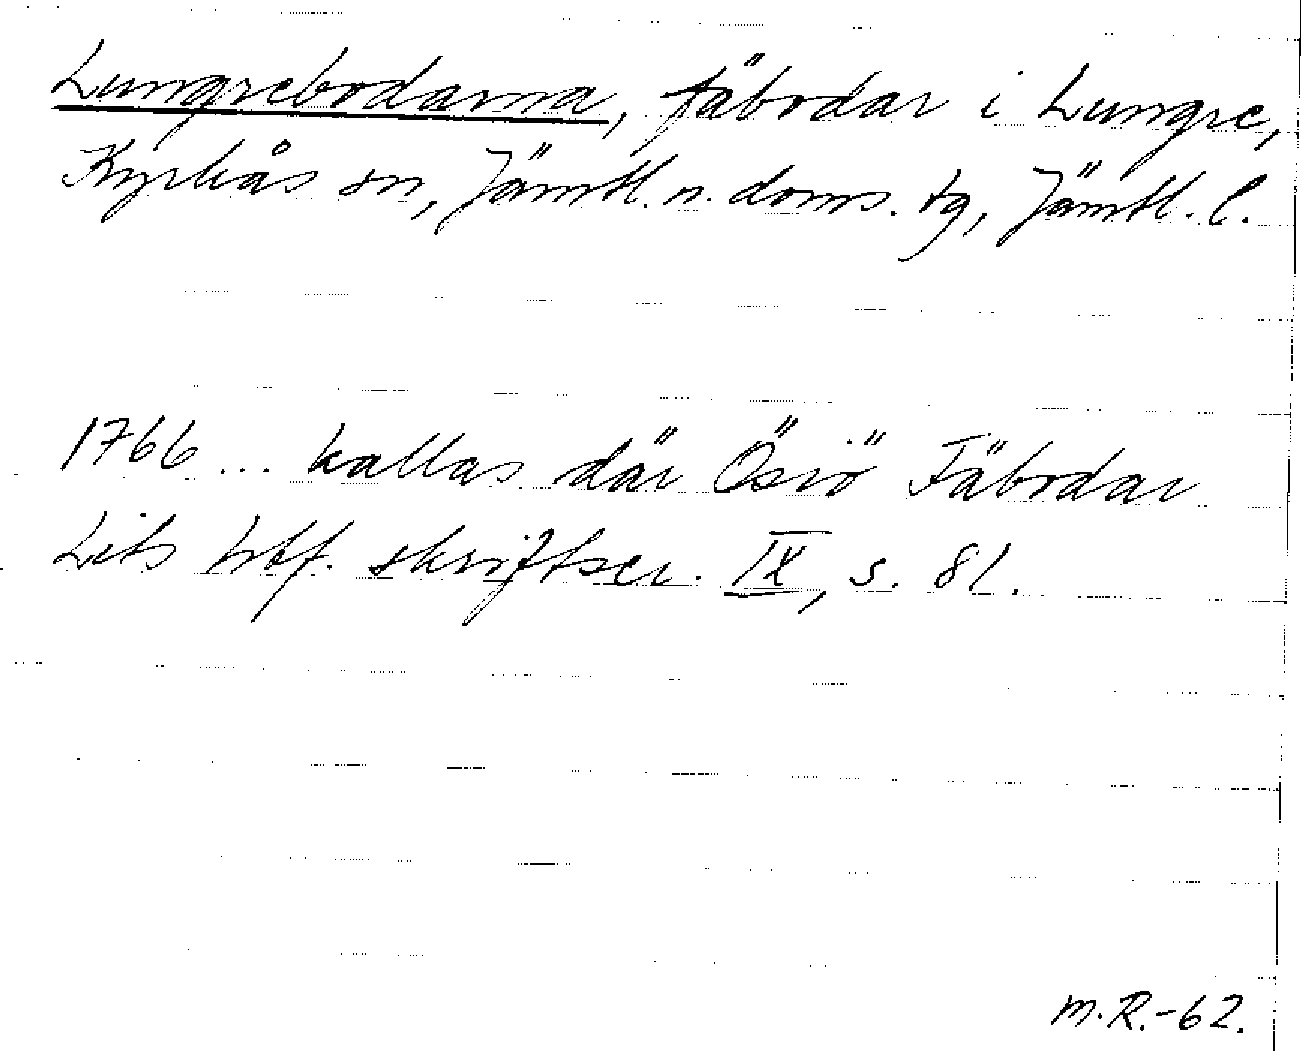 Lungrebodarna, fäbodar i Lungre,
Kyrkås sn, Jämtl. n. doms. tg, Jämtl. l.
1766 ... kallas där Ösiö Fäbodar
Lits hbf. skriftser. IX, s. 81.
M.R.-62.